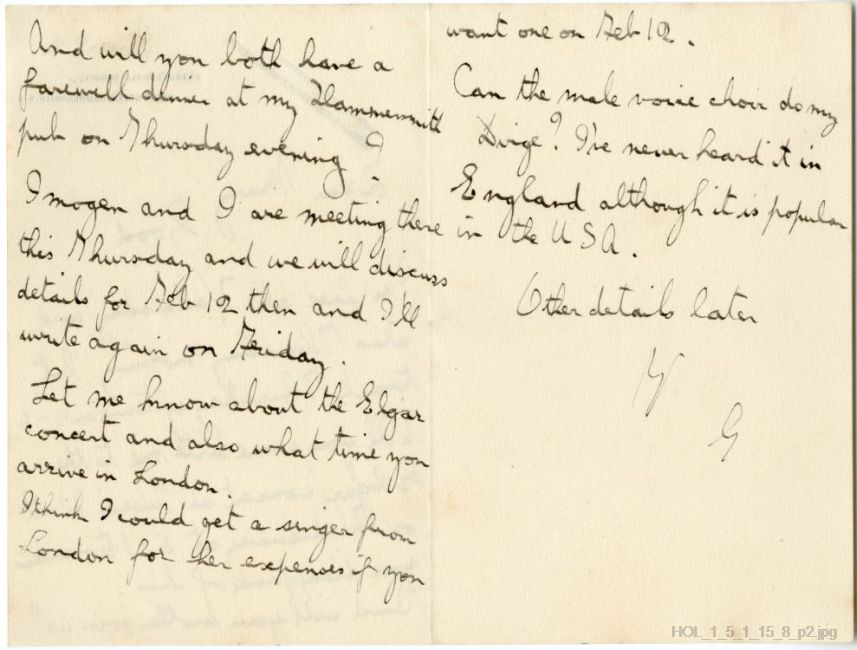 And will you both have a
farewell dinner at my Hammersmith
pub on Thursday evening?
Imogen and I are meeting there
this Thursday and we will discuss
details for Feb 12 then and I'll
write again on Friday.
Let me know about the Elgar
concert and also what time you
arrive in London.
I think I could get a singer from
London for her expenses if you
want one on Feb 12.
Can the male voice choir do my
Dirge? I've never heard it in
England although it is popular
in the USA.
Other details later
G
HOL_1_5_1_15_8_p2.jpg